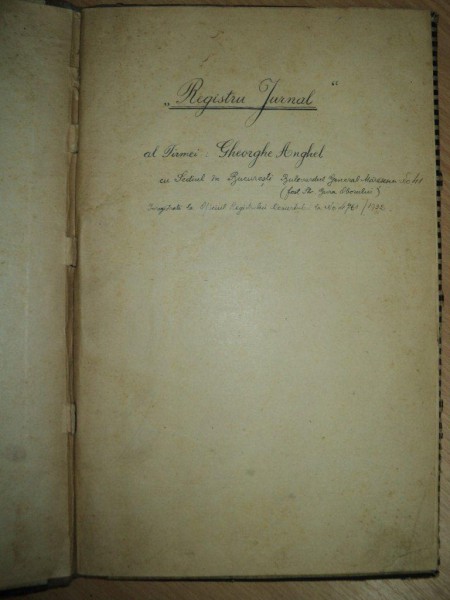 „Registru Jurnal“
al Firmei: Gheorghe Anghel
cu Sediul în București Bulevardul General No 41
(fost St. Gura Oborului)
la Oficiul Registrului la No 4961/1932